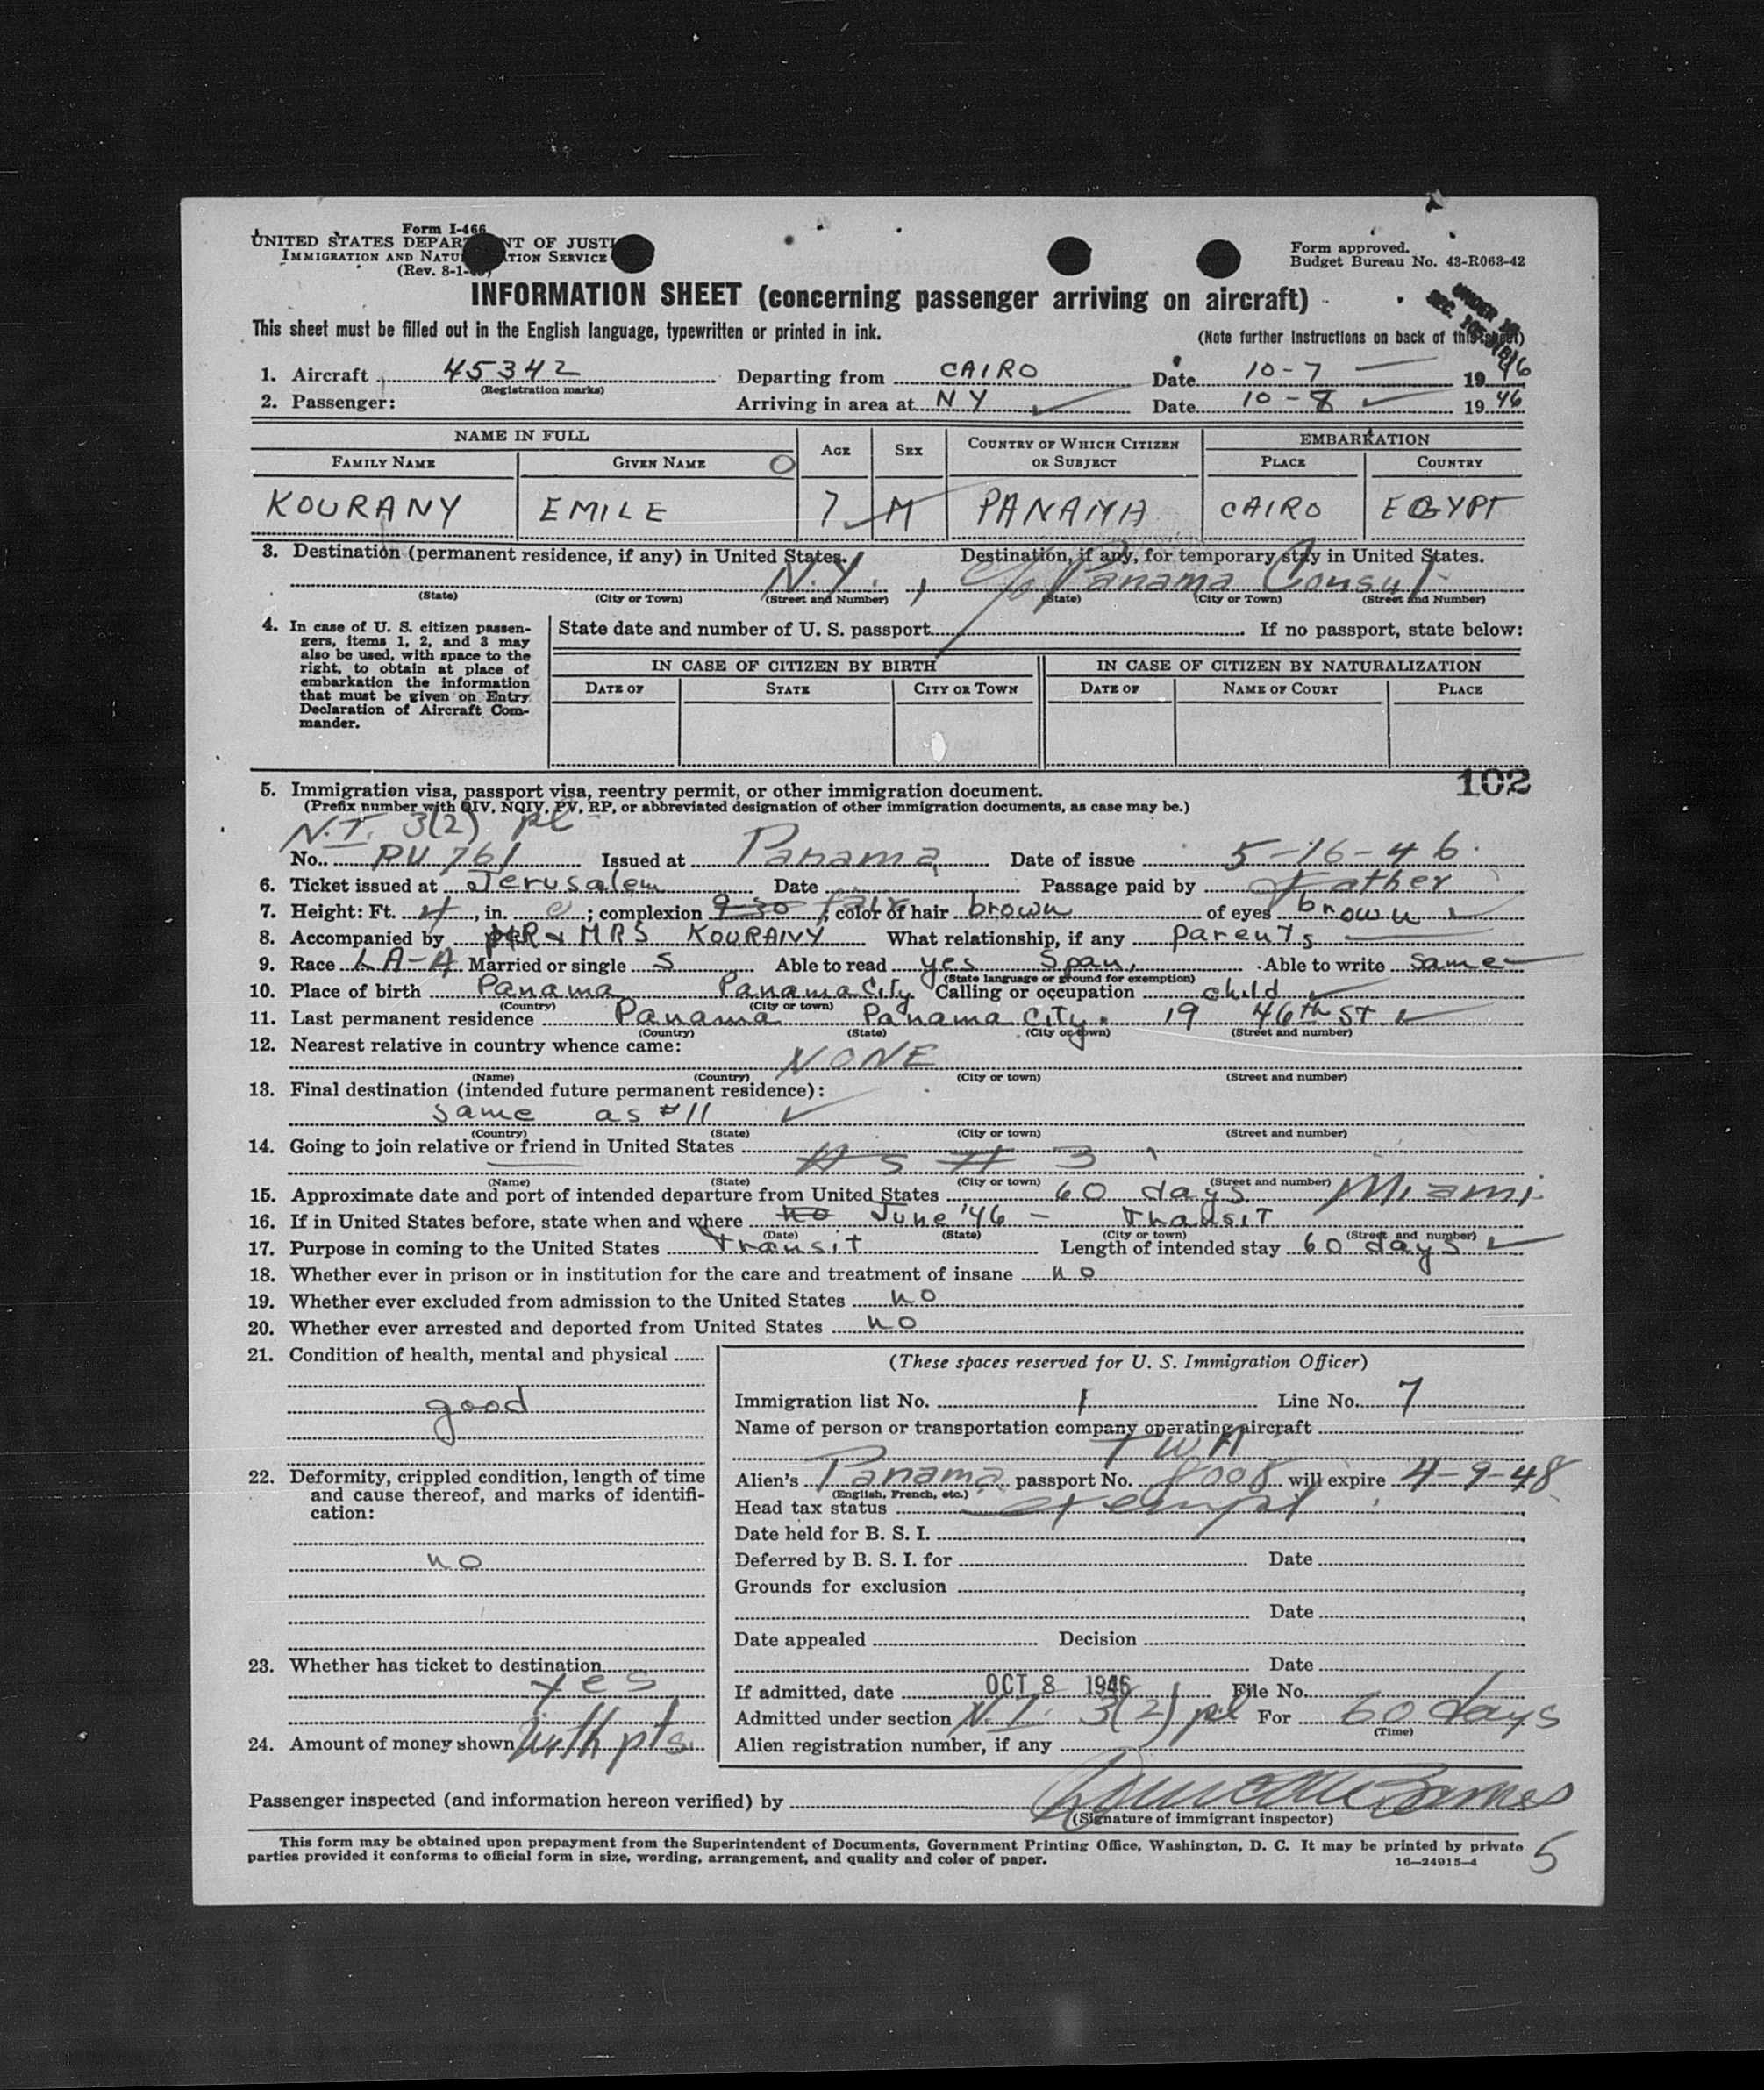 Form I-466
UNITED STATES DEPARTMENT OF JUSTICE
IMMIGRATION AND NATURALIZATION SERVICE
(Rev. 8-1-
Form approved.
Budget Bureau No. 43-R063-42
INFORMATION SHEET (concerning passenger arriving on aircraft)
UNDER 16
This sheet must be filled out in the English language, typewritten or printed in ink. (Note further instructions on back of this sheet)
1. Aircraft 45342 Departing from CAIRO Date 10-7 1946
(Registration marks)
2. Passenger: Arriving in area at NY Date 10-8 1946
NAME IN FULL AGE SEX COUNTRY OF WHICH CITIZEN OR SUBJECT EMBARKATION
FAMILY NAME GIVEN NAME PLACE COUNTRY
KOURANY EMILE 7 M PANAMA CAIRO EGYPT
3. Destination (permanent residence, if any) in United States. Destination, if any, for temporary stay in United States.
N.Y., c/o Panama Consul
(State) (City or Town) (Street and Number) (State) (City or Town) (Street and Number)
4. In case of U. S. citizen passen-
gers, items 1, 2, and 3 may
also be used, with space to the
right, to obtain at place of
embarkation the information
that must be given on Entry
Declaration of Aircraft Com-
mander.
State date and number of U. S. passport If no passport, state below:
IN CASE OF CITIZEN BY BIRTH IN CASE OF CITIZEN BY NATURALIZATION
DATE OF STATE CITY OR TOWN DATE OF NAME OF COURT PLACE
102
5. Immigration visa, passport visa, reentry permit, or other immigration document.
(Prefix number with QIV, NQIV, PV, RP, or abbreviated designation of other immigration documents, as case may be.)
N.I. 3(2) pl
No. PV 761 Issued at Panama Date of issue 5-16-46
6. Ticket issued at Jerusalem Date Passage paid by Father
7. Height: Ft. 4, in. 0; complexion fair; color of hair brown of eyes brown
8. Accompanied by MR & MRS KOURANY What relationship, if any parents
9. Race LA-A Married or single S Able to read yes Span, Able to write same
(State language or ground for exemption)
10. Place of birth Panama Panama City Calling or occupation child
(Country) (City or town)
11. Last permanent residence Panama Panama City 19 46th ST
(Country) (State) (City or town) (Street and number)
12. Nearest relative in country whence came:
NONE
(Name) (Country) (City or town) (Street and number)
13. Final destination (intended future permanent residence):
same as #11
(Country) (State) (City or town) (Street and number)
14. Going to join relative or friend in United States
As # 3
(Name) (State) (City or town) (Street and number)
15. Approximate date and port of intended departure from United States 60 days Miami
16. If in United States before, state when and where no June '46 - Transit
(Date) (State) (City or town) (Street and number)
17. Purpose in coming to the United States Transit Length of intended stay 60 days
18. Whether ever in prison or in institution for the care and treatment of insane no
19. Whether ever excluded from admission to the United States no
20. Whether ever arrested and deported from United States no
21. Condition of health, mental and physical
good
22. Deformity, crippled condition, length of time
and cause thereof, and marks of identifi-
cation:
no
23. Whether has ticket to destination
yes
24. Amount of money shown with pts.
(These spaces reserved for U. S. Immigration Officer)
Immigration list No. 1 Line No. 7
Name of person or transportation company operating aircraft
TWA
Alien's Panama passport No. 8008 will expire 4-9-48
(English, French, etc.)
Head tax status exempt
Date held for B. S. I.
Deferred by B. S. I. for Date
Grounds for exclusion
Date
Date appealed Decision
Date
If admitted, date OCT 8 1946 File No.
Admitted under section N.I. 3(2) pl For 60 days
(Time)
Alien registration number, if any
Passenger inspected (and information hereon verified) by
(Signature of immigrant inspector)
This form may be obtained upon prepayment from the Superintendent of Documents, Government Printing Office, Washington, D. C. It may be printed by private
parties provided it conforms to official form in size, wording, arrangement, and quality and color of paper. 16—24915-4
5